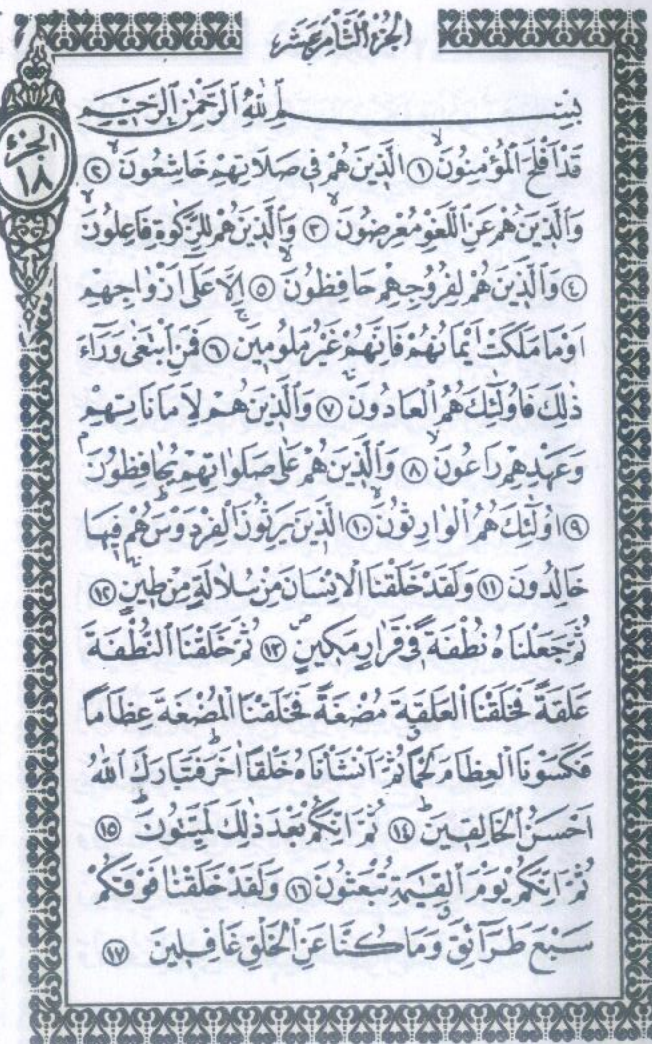 الجزء الثامن عشر
الجزء
١٨
بِسْمِ اللّٰهِ الرَّحْمٰنِ الرَّحِيمِ
قَدْ اَفْلَحَ الْمُؤْمِنُونَۙ ﴿١﴾ اَلَّذِينَ هُمْ فِي صَلَاتِهِمْ خَاشِعُونَۙ ﴿٢﴾
وَالَّذِينَ هُمْ عَنِ اللَّغْوِ مُعْرِضُونَۙ ﴿٣﴾ وَالَّذِينَ هُمْ لِلزَّكٰوةِ فَاعِلُونَۙ
﴿٤﴾ وَالَّذِينَ هُمْ لِفُرُوجِهِمْ حَافِظُونَۙ ﴿٥﴾ اِلَّا عَلٰٓى اَزْوَاجِهِمْ
اَوْ مَا مَلَكَتْ اَيْمَانُهُمْ فَاِنَّهُمْ غَيْرُ مَلُومِينَۚ ﴿٦﴾ فَمَنِ ابْتَغٰى وَرَٓاءَ
ذٰلِكَ فَاُولٰٓئِكَ هُمُ الْعَادُونَۚ ﴿٧﴾ وَالَّذِينَ هُمْ لِاَمَانَاتِهِمْ
وَعَهْدِهِمْ رَاعُونَۙ ﴿٨﴾ وَالَّذِينَ هُمْ عَلٰى صَلَوَاتِهِمْ يُحَافِظُونَۘ
﴿٩﴾ اُولٰٓئِكَ هُمُ الْوَارِثُونَۙ ﴿١٠﴾ اَلَّذِينَ يَرِثُونَ الْفِرْدَوْسَۜ هُمْ فِيهَا
خَالِدُونَ ﴿١١﴾ وَلَقَدْ خَلَقْنَا الْاِنْسَانَ مِنْ سُلَالَةٍ مِنْ طِينٍۚ ﴿١٢﴾
ثُمَّ جَعَلْنَاهُ نُطْفَةً فِي قَرَارٍ مَكِينٍۖ ﴿١٣﴾ ثُمَّ خَلَقْنَا النُّطْفَةَ
عَلَقَةً فَخَلَقْنَا الْعَلَقَةَ مُضْغَةً فَخَلَقْنَا الْمُضْغَةَ عِظَاماً
فَكَسَوْنَا الْعِظَامَ لَحْماًۗ ثُمَّ اَنْشَأْنَاهُ خَلْقاً اٰخَرَۜ فَتَبَارَكَ اللّٰهُ
اَحْسَنُ الْخَالِقِينَۜ ﴿١٤﴾ ثُمَّ اِنَّكُمْ بَعْدَ ذٰلِكَ لَمَيِّتُونَۜ ﴿١٥﴾
ثُمَّ اِنَّكُمْ يَوْمَ الْقِيٰمَةِ تُبْعَثُونَ ﴿١٦﴾ وَلَقَدْ خَلَقْنَا فَوْقَكُمْ
سَبْعَ طَرَٓائِقَۗ وَمَا كُنَّا عَنِ الْخَلْقِ غَافِلِينَ ﴿١٧﴾